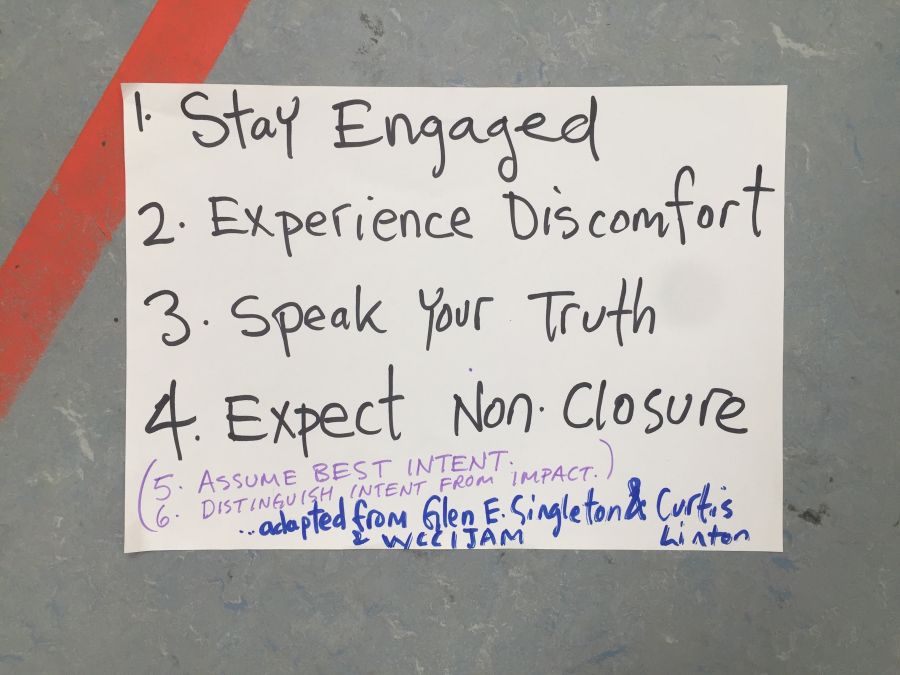 1. Stay Engaged
2. Experience Discomfort
3. Speak Your Truth
4. Expect Non-Closure
(5. ASSUME BEST INTENT.)
(6. DISTINGUISH INTENT FROM IMPACT.)
...adapted from Glen E. Singleton & Curtis
& WCCIJAM Linton